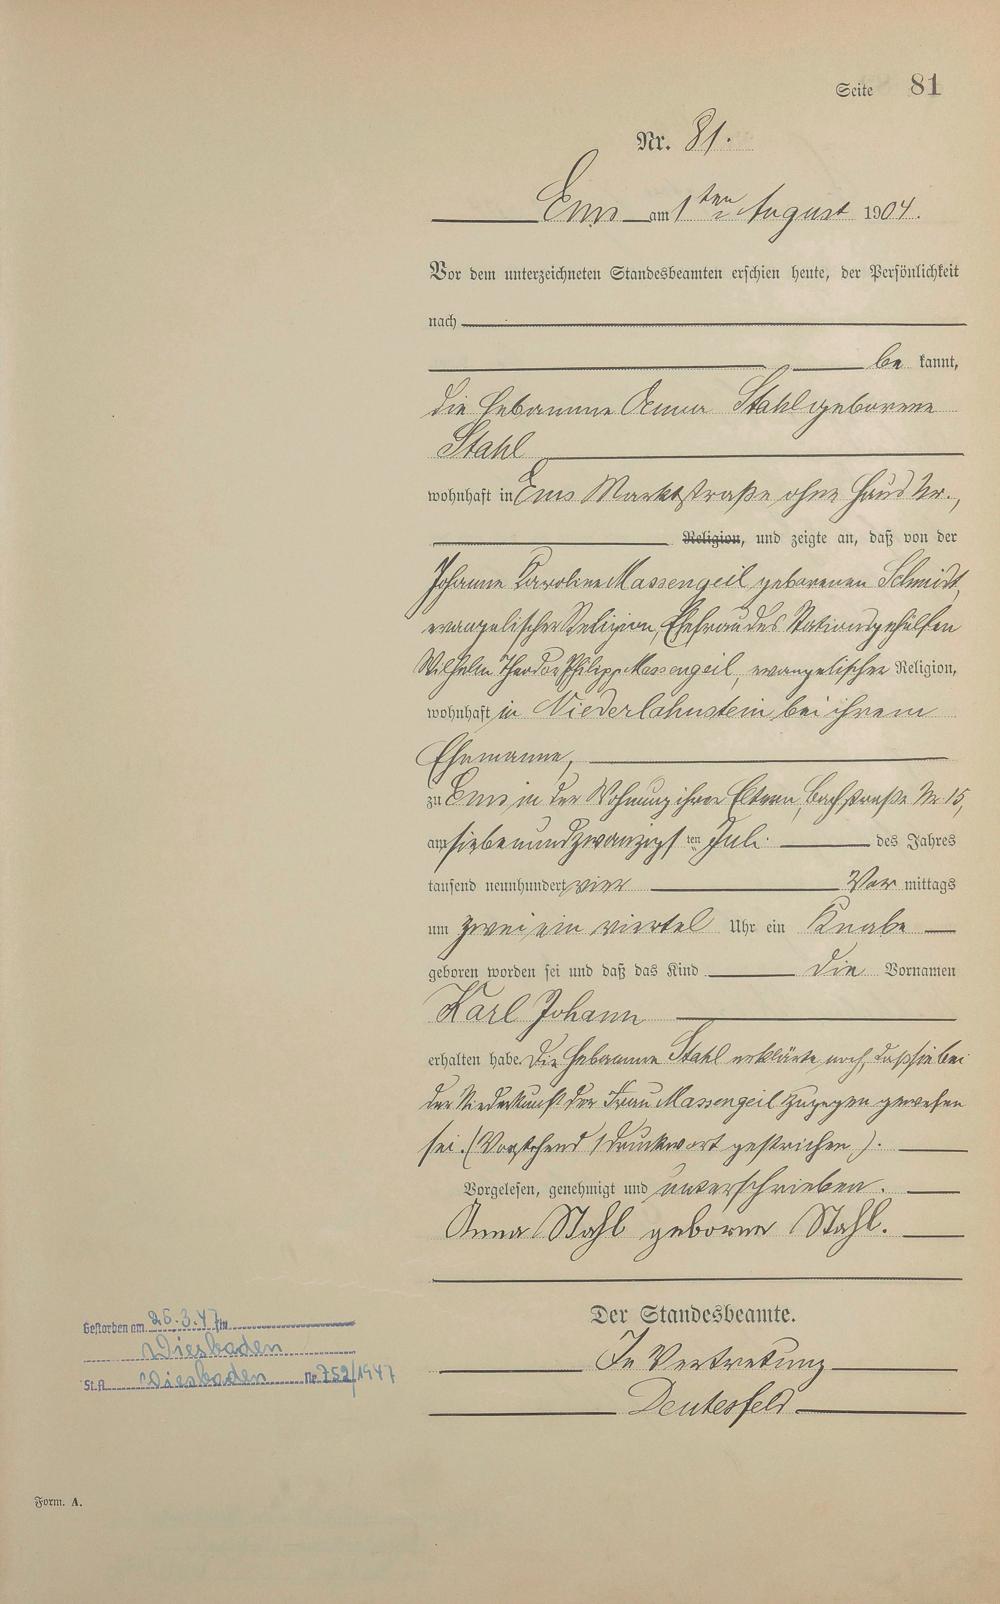 Seite 81
Nr. 81.
Ems am 1ten August 1904.
Vor dem unterzeichneten Standesbeamten erschien heute, der Persönlichkeit
nach
be kannt,
die Hebamme Anna Stahl geborene
Stahl
wohnhaft in Ems Marktstraße ohne Haus Nr.,
Religion, und zeigte an, daß von der
Johanne Karoline Massengeil geborenen Schmidt,
evangelischer Religion, Ehefrau des Stationsgehülfen
Wilhelm Theodor Philipp Massengeil, evangelischer Religion,
wohnhaft in Niederlahnstein bei ihrem
Ehemanne,
zu Ems in der Wohnung ihrer Eltern, Bachstraße Nr 15,
am siebenundzwanzigsten Juli des Jahres
tausend neunhundert vier Vor mittags
um zwei ein viertel Uhr ein Knabe
geboren worden sei und daß das Kind die Vornamen
Karl Johann
erhalten habe. Die Hebamme Stahl erklärte noch, daß sie bei
der Niederkunft der Frau Massengeil zugegen gewesen
sei. (Vorstehend 1 Druckwort gestrichen).
Vorgelesen, genehmigt und unterschrieben.
Anna Stahl geborne Stahl.
Der Standesbeamte.
In Vertretung
Deutesfeld
Gestorben am 26.3.47 in
Wiesbaden
St.A. Wiesbaden Nr 752/1947
Form. A.